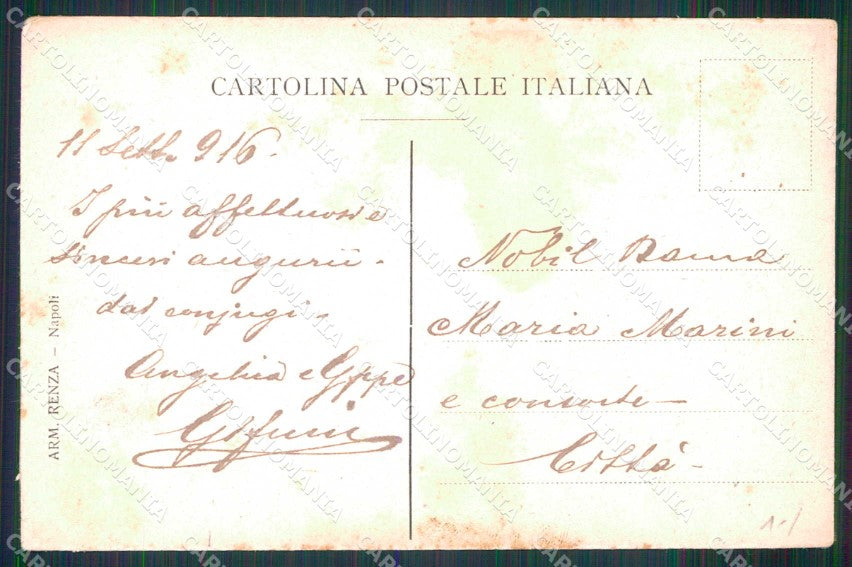 CARTOLINA POSTALE ITALIANA
11 Sett. 916.
I più affettuosi e
sinceri augurii -
dai conjugi -
e Gppe
ARM. RENZA – Napoli
Nobil Dama
Maria Marini
e consorte -
Città -
CARTOLINOMANIA